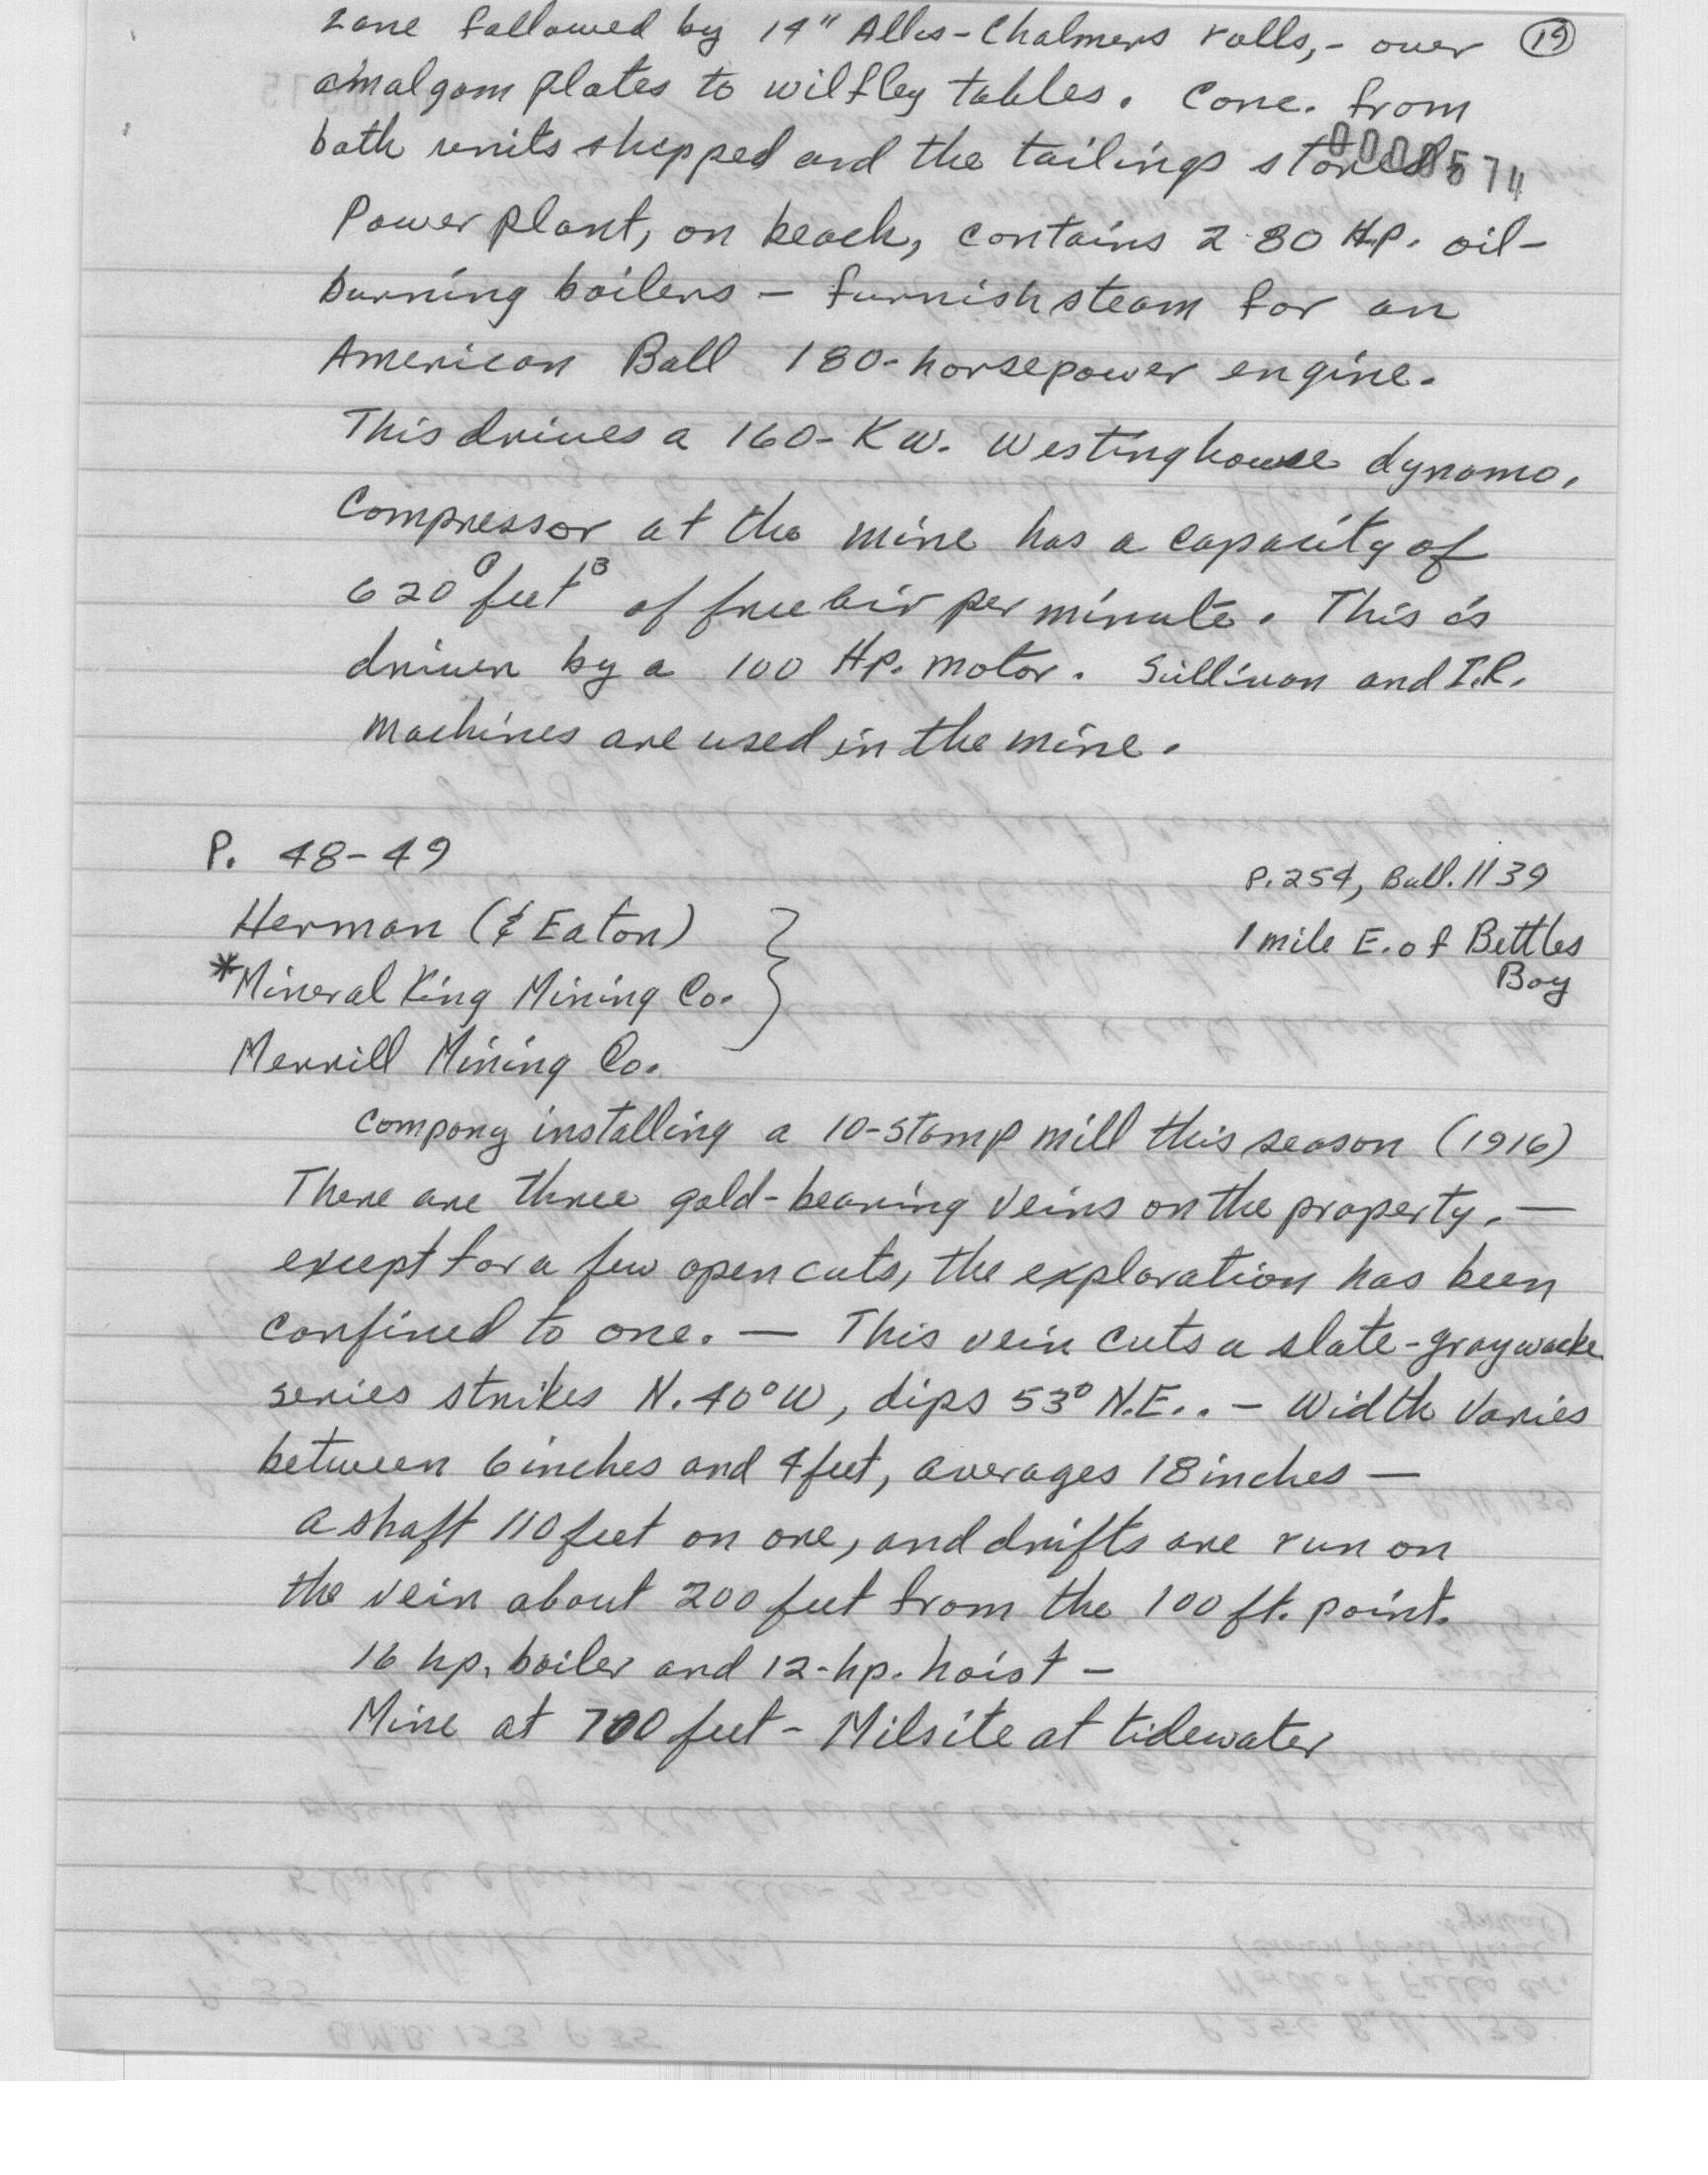 zone followed by 14" Allis-Chalmers rolls,- over (19)
amalgam plates to wilfley tables. Conc. from
both units shipped and the tailings stored.
0000574
Power plant, on beach, contains 2-80 H.P. oil-
burning boilers - furnish steam for an
American Ball 180-horsepower engine.
This drives a 160-K.W. Westinghouse dynamo.
Compressor at the mine has a capacity of
620 feet³ of free air per minute. This is
driven by a 100 H.P. motor. Sullivan and I.R.
machines are used in the mine.
P. 48-49
P. 254, Bull. 1139
Herman (& Eaton) }
1 mile E. of Bettles
Bay
*Mineral King Mining Co.
Merrill Mining Co.
Company installing a 10-stamp mill this season (1916)
There are three gold-bearing veins on the property. —
except for a few open cuts, the exploration has been
confined to one. — This vein cuts a slate-graywacke
series strikes N. 40° W, dips 53° N.E.. - Width varies
between 6 inches and 4 feet, averages 18 inches —
a shaft 110 feet on ore, and drifts are run on
the vein about 200 feet from the 100 ft. point.
16 hp. boiler and 12-hp. hoist -
Mine at 700 feet - Milsite at tidewater